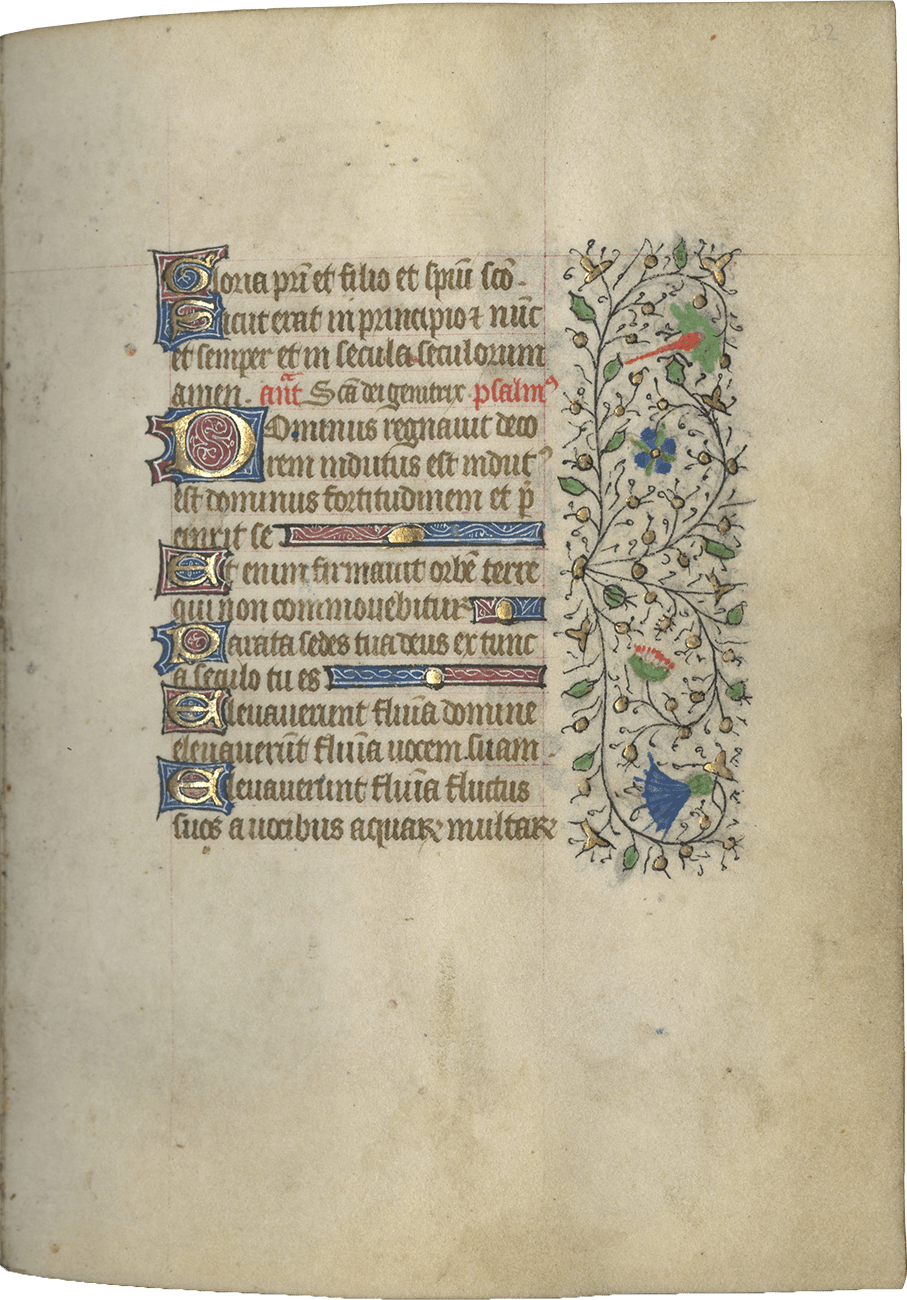 22
Gloria pr̄i et filio et spūi sc̄o .
Sicut erat in principio ⁊ nūc
et semper et in secula seculorum
amen . an̄t Sc̄a dei genitrix psalmꝰ
Dominus regnauit deco
rem indutus est indutꝰ
est dominus fortitudinem et p̄
cinxit se
Et enim firmauit orbē terre
qui non commouebitur
Parata sedes tua deus ex tunc
a seculo tu es
Eleuauerunt flu͞ia domine
eleuauerūt flu͞ia uocem suam .
Eleuauerunt flu͞ia fluctus
suos a uocibus aquaꝝ multaꝝ